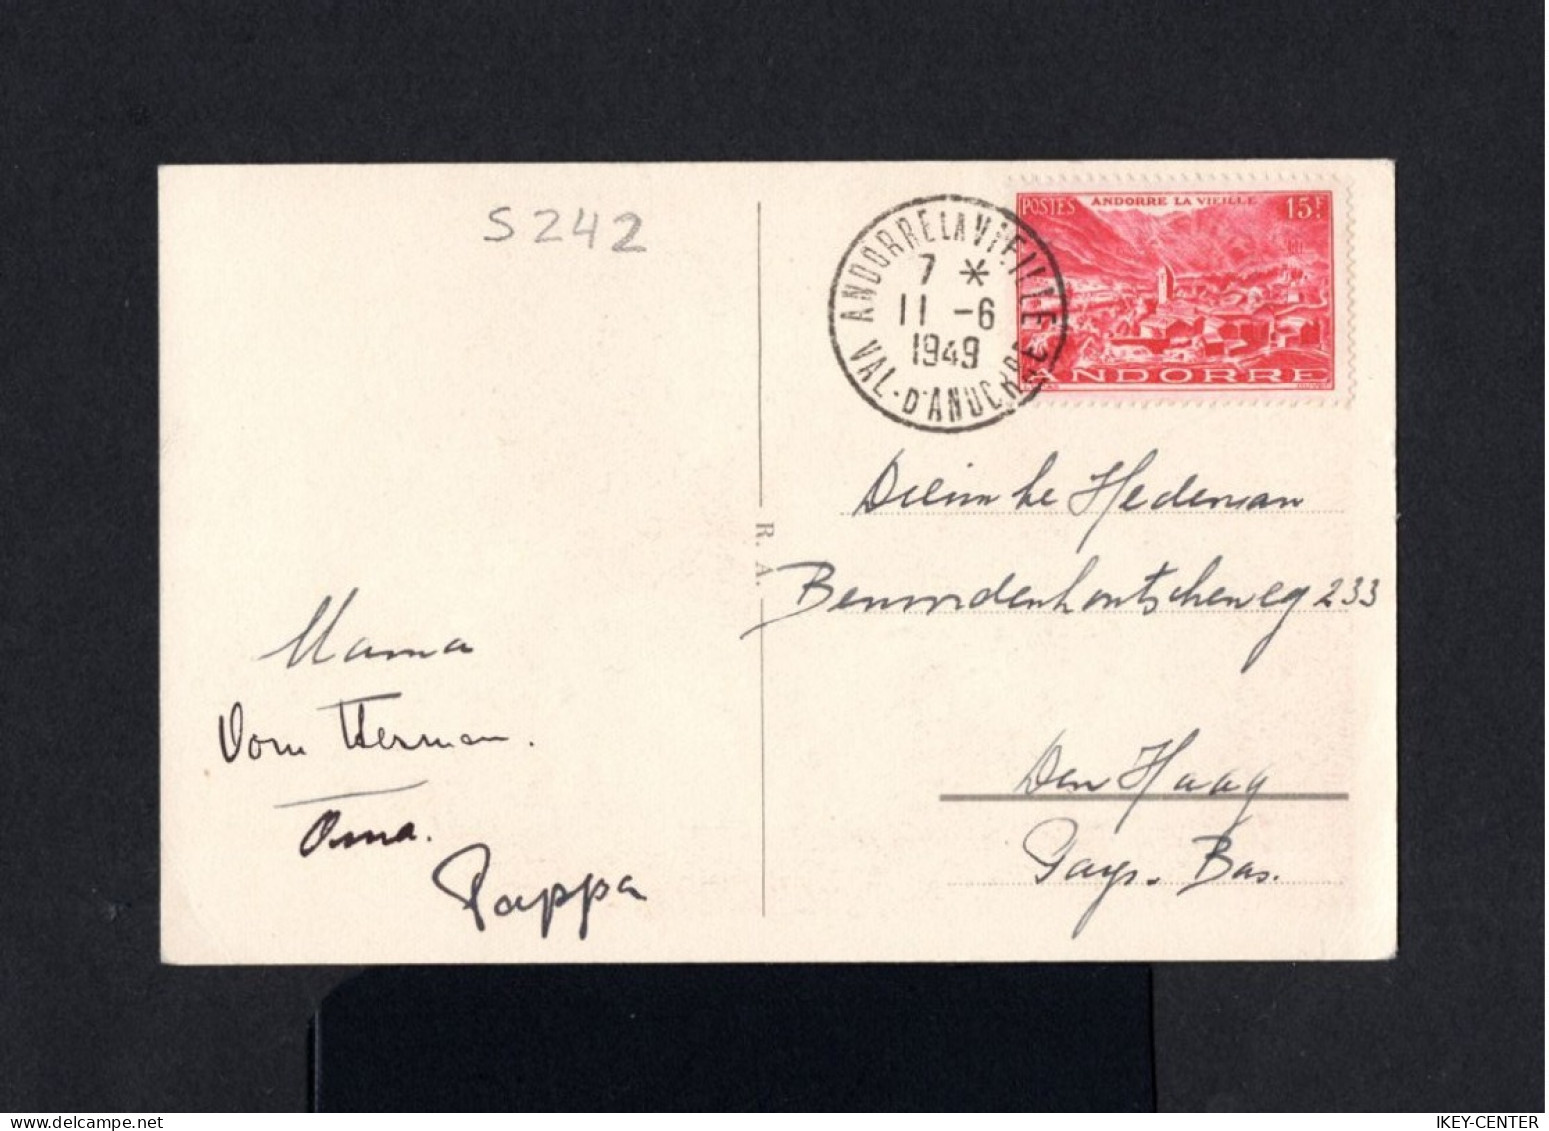 S242
ANDORRE LA VIEILLE
VAL-D'ANDORRE
7 *
11 -6
1949
POSTES ANDORRE LA VIEILLE 15F
ANDORRE
Hedeman
R. A.
233
Mama
Herman.
Oma.
Pappa
Den Haag
Pays-Bas.
IKEY-CENTER